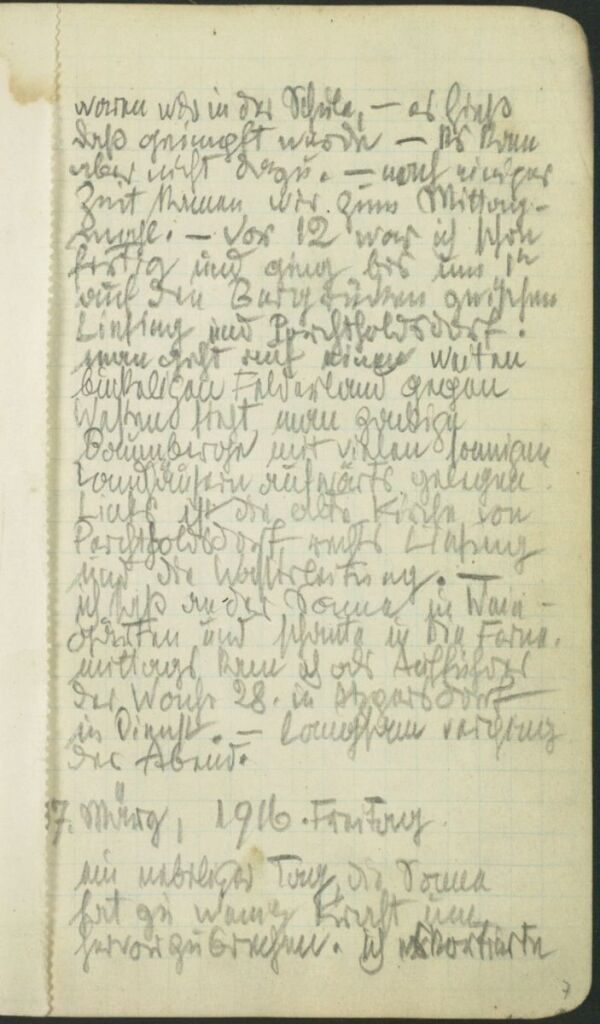 waren wir in der Schule, – es hieß
daß geimpft würde – Es kam
aber nicht dazu. – nach einiger
Zeit kamen wir zum Mittag-
mahl. – Vor 12 war ich schon
fertig und ging bis um 1h
auf den Bergrücken zwischen
Liesing und Perchtholdsdorf.
man geht auf einem weiten
buckeligen Felderland gegen
Westen sieht man zackige
Baumberge mit vielen sonnigen
Landhäusern aufwärts gelegen.
Links ist die alte Kirche von
Perchtholdsdorf, rechts Liesing
und die Wasserleitung. –
ich saß an der Sonne in Wein-
gärten und schaute in die Ferne.
mittags kam ich als Aufführer
der Wache 28. in Atzgersdorf
in Dienst. – Langsam verging
der Abend.
17. März, 1916. Freitag.
ein nebeliger Tag, die Sonne
hat zu wenig Kraft um
hervorzubrechen. ich eskortierte
7